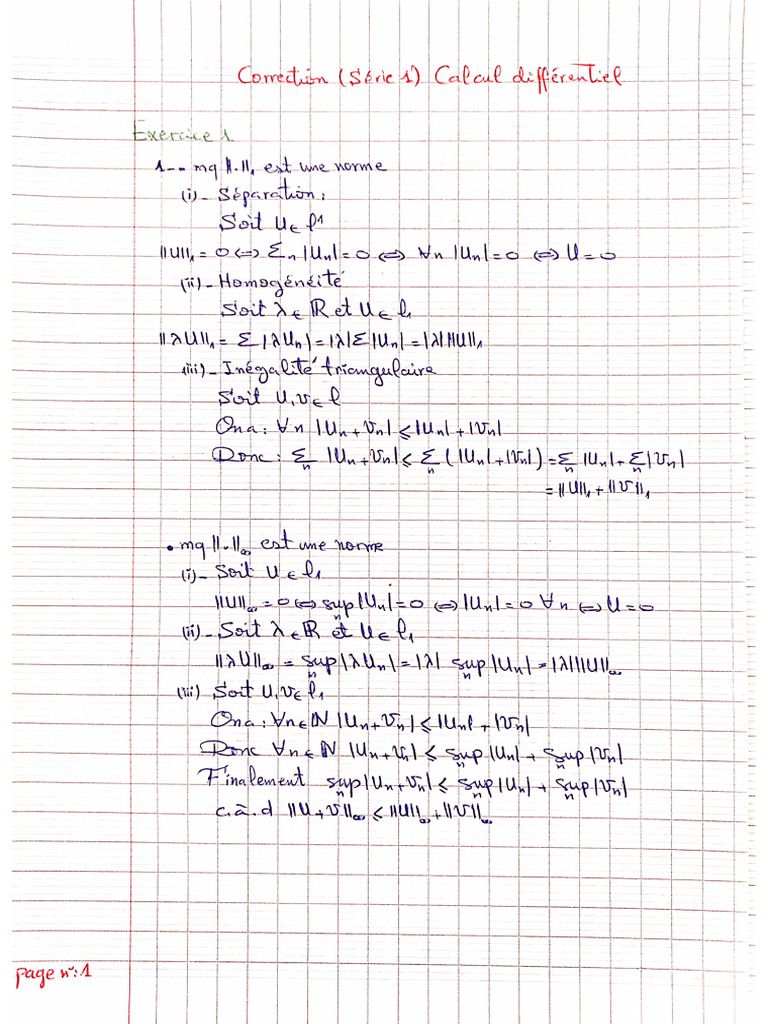 Correction (Série 1) Calcul différentiel
Exercice 1.
1-- mq ||.||₁ est une norme
(i)- Séparation :
Soit U ∈ l¹
||U||₁ = 0 ⇔ Σₙ |Uₙ| = 0 ⇔ ∀n |Uₙ| = 0 ⇔ U = 0
(ii)- Homogénéité
Soit λ ∈ ℝ et U ∈ l₁
||λU||₁ = Σ |λUₙ| = |λ| Σ |Uₙ| = |λ| ||U||₁
(iii)- Inégalité triangulaire
Soit U, v ∈ l
On a : ∀n |Uₙ + Vₙ| ≤ |Uₙ| + |Vₙ|
Donc : Σₙ |Uₙ + Vₙ| ≤ Σₙ (|Uₙ| + |Vₙ|) = Σₙ |Uₙ| + Σₙ |Vₙ|
= ||U||₁ + ||V||₁
• mq ||.||∞ est une norme
(i)- Soit U ∈ l₁
||U||∞ = 0 ⇔ supₙ |Uₙ| = 0 ⇔ |Uₙ| = 0 ∀n ⇔ U = 0
(ii)- Soit λ ∈ ℝ et U ∈ l₁
||λU||∞ = supₙ |λUₙ| = |λ| supₙ |Uₙ| = |λ| ||U||∞
(iii) Soit U, v ∈ l₁
On a : ∀n ∈ ℕ |Uₙ + Vₙ| ≤ |Uₙ| + |Vₙ|
Donc ∀n ∈ ℕ |Uₙ + Vₙ| ≤ supₙ |Uₙ| + supₙ |Vₙ|
Finalement supₙ |Uₙ + Vₙ| ≤ supₙ |Uₙ| + supₙ |Vₙ|
c.à.d ||U + V||∞ ≤ ||U||∞ + ||V||∞
page n°: 1